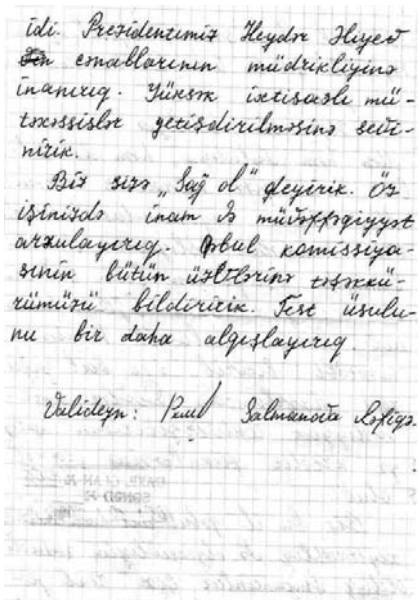 idi. Prezidentimiz Heydər Əliyev
cənablarının müdrikliyinə
inanırıq. Yüksək ixtisaslı mü-
təxəssislər yetişdirilməsinə sevi-
nirik.
Biz sizə „Sağ ol" deyirik. Öz
işinizdə inam və müvəffəqiyyət
arzulayırıq. Qəbul komissiya-
sının bütün üzvlərinə təşəkkü-
rümüzü bildiririk. Test üsulu-
nu bir daha alqışlayırıq.
Valideyn: Salmanova Rəfiqə.